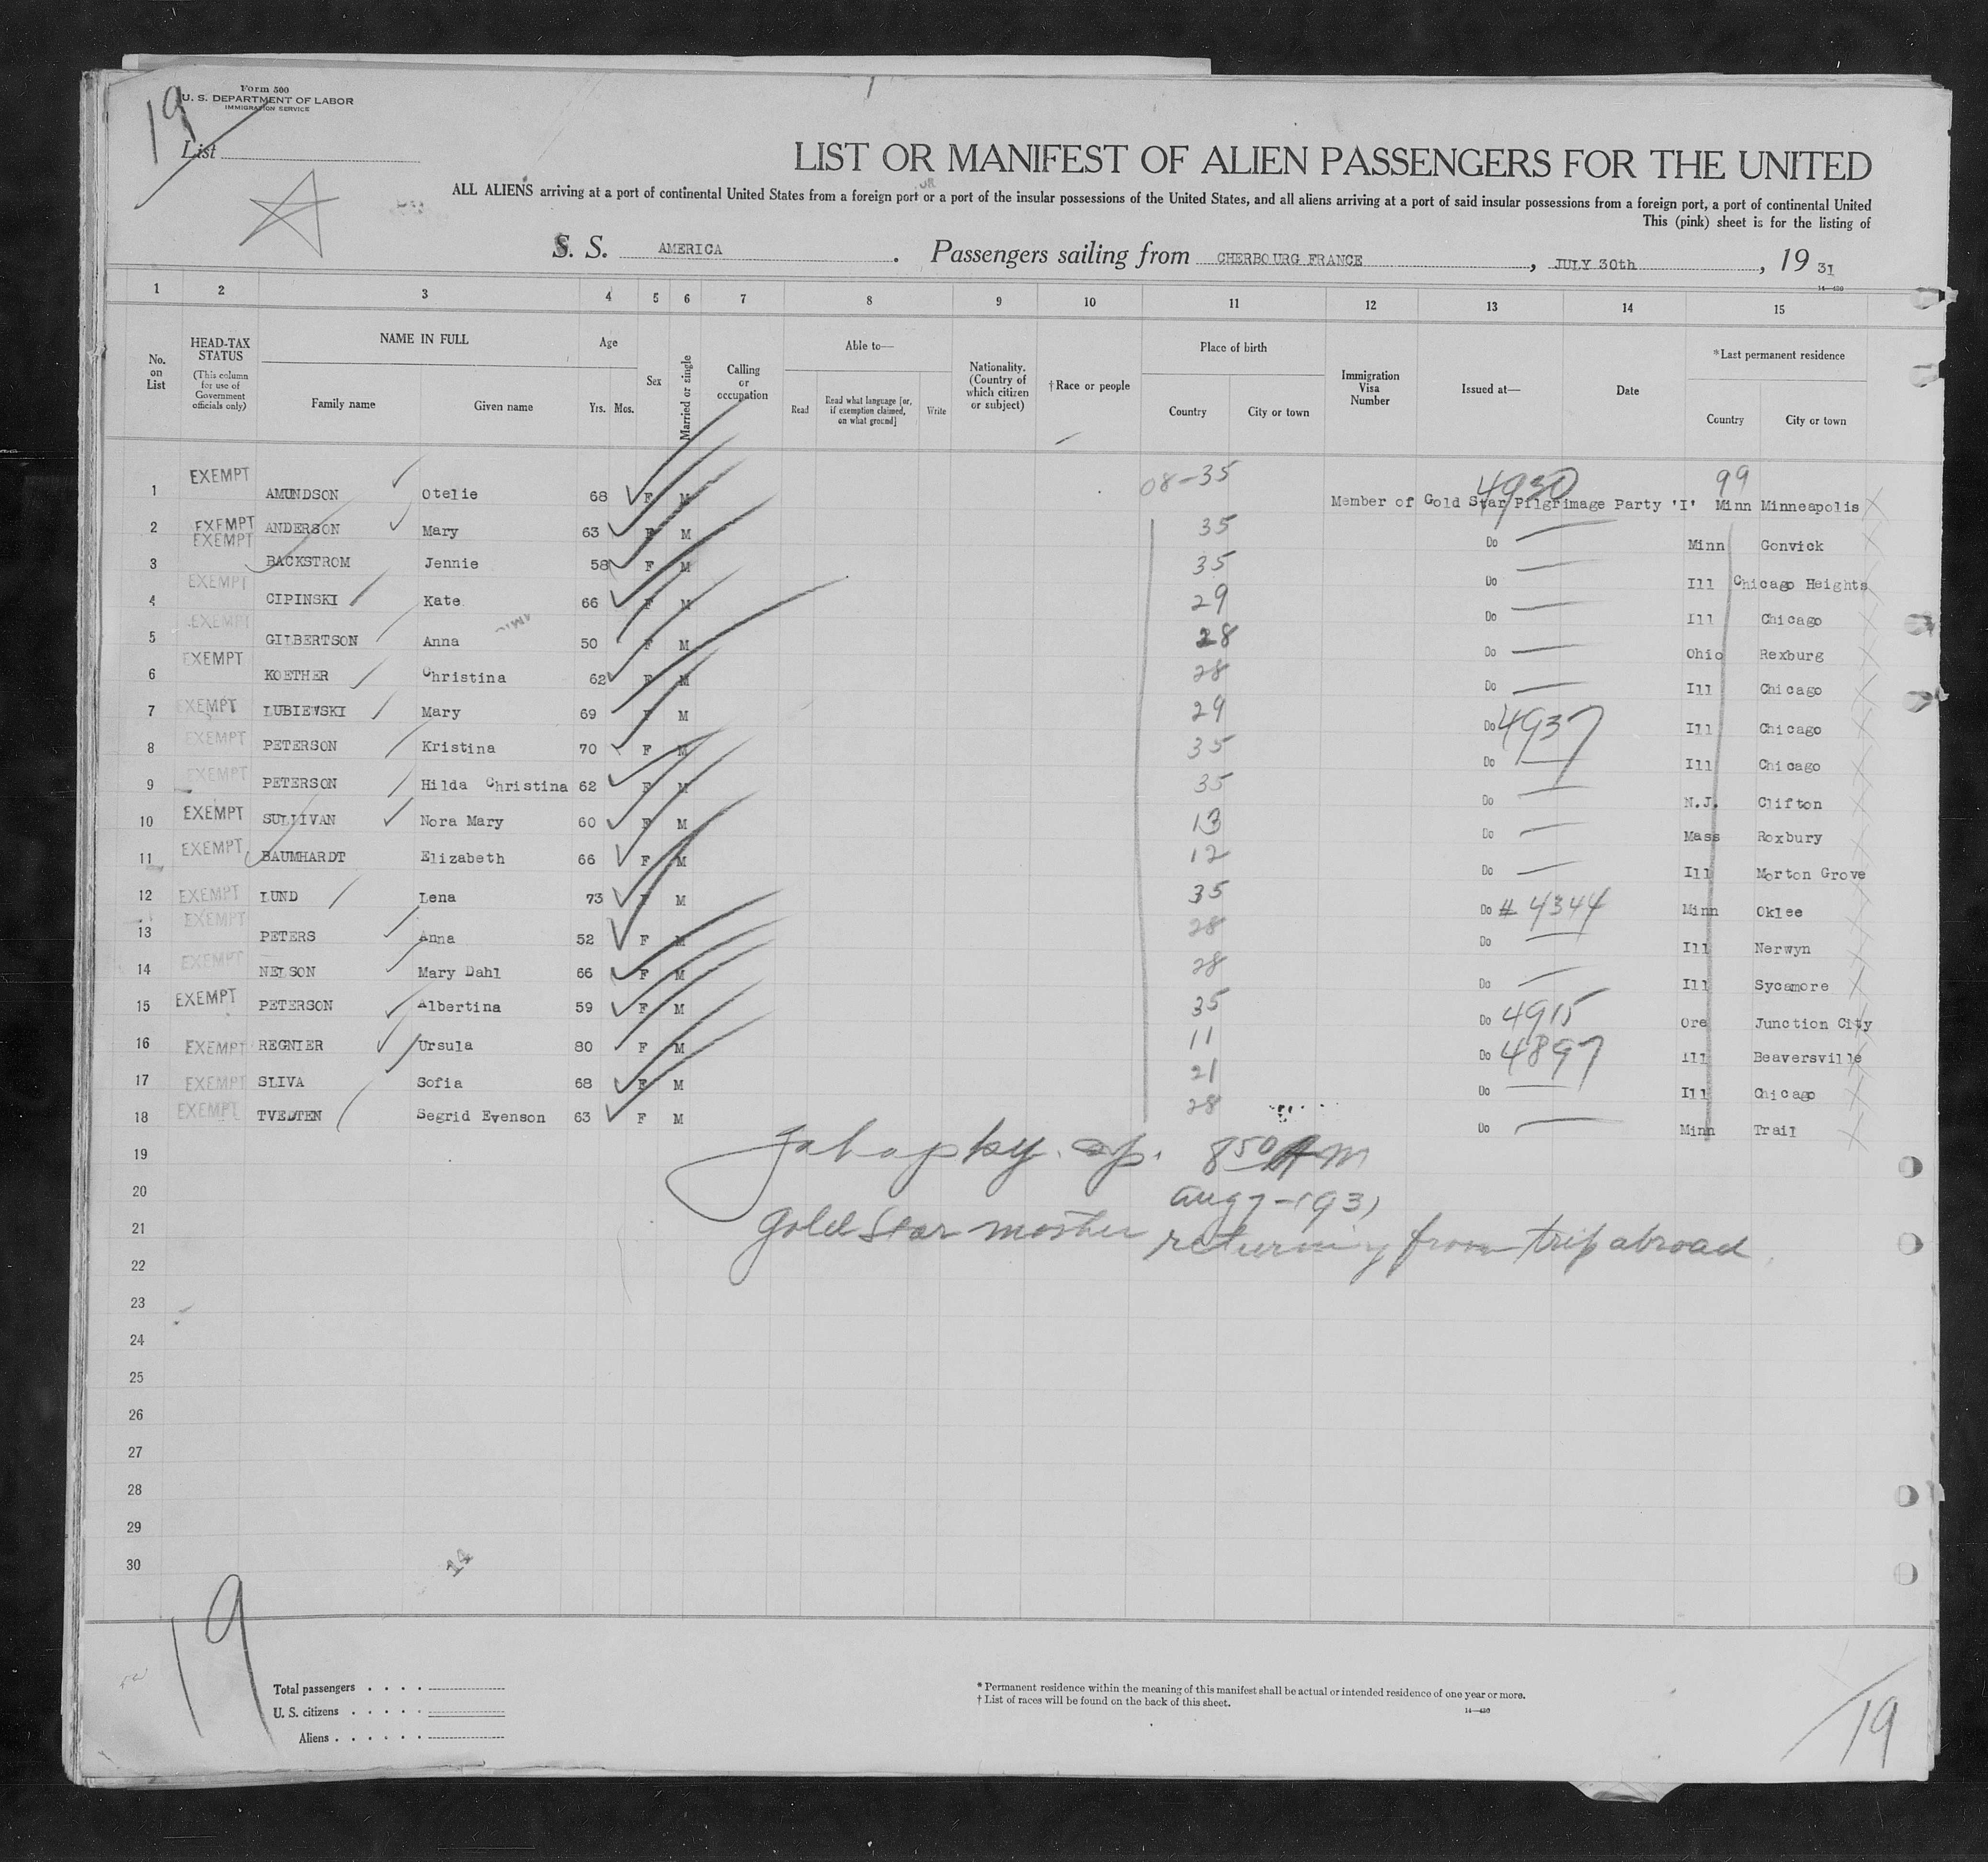 19
Form 500
U. S. DEPARTMENT OF LABOR
IMMIGRATION SERVICE
List
LIST OR MANIFEST OF ALIEN PASSENGERS FOR THE UNITED
ALL ALIENS arriving at a port of continental United States from a foreign port or a port of the insular possessions of the United States, and all aliens arriving at a port of said insular possessions from a foreign port, a port of continental United
This (pink) sheet is for the listing of
S. S. AMERICA . Passengers sailing from CHERBOURG FRANCE , JULY 30th , 19 31
14—430
1 2 3 4 5 6 7 8 9 10 11 12 13 14 15
No. on List
HEAD-TAX STATUS (This column for use of Government officials only)
NAME IN FULL
Family name Given name
Age
Yrs. Mos.
Sex
Married or single
Calling or occupation
Able to—
Read
Read what language [or, if exemption claimed, on what ground]
Write
Nationality. (Country of which citizen or subject)
†Race or people
Place of birth
Country City or town
Immigration Visa Number
Issued at—
Date
*Last permanent residence
Country City or town
1 EXEMPT AMUNDSON Otelie 68 F M 08-35 Member of Gold Star Pilgrimage Party 'I' 4930 99 Minn Minneapolis
2 EXEMPT ANDERSON Mary 63 F M 35 Do Minn Gonvick
3 EXEMPT BACKSTROM Jennie 58 F M 35 Do Ill Chicago Heights
4 EXEMPT CIPINSKI Kate 66 F M 29 Do Ill Chicago
5 EXEMPT GILBERTSON Anna 50 F M 28 Do Ohio Rexburg
6 EXEMPT KOETHER Christina 62 F M 28 Do Ill Chicago
7 EXEMPT LUBIEWSKI Mary 69 F M 29 Do 4937 Ill Chicago
8 EXEMPT PETERSON Kristina 70 F M 35 Do Ill Chicago
9 EXEMPT PETERSON Hilda Christina 62 F M 35 Do N.J. Clifton
10 EXEMPT SULLIVAN Nora Mary 60 F M 13 Do Mass Roxbury
11 EXEMPT BAUMHARDT Elizabeth 66 F M 12 Do Ill Morton Grove
12 EXEMPT LUND Lena 73 F M 35 Do # 4344 Minn Oklee
13 EXEMPT PETERS Anna 52 F M 28 Do Ill Nerwyn
14 EXEMPT NELSON Mary Dahl 66 F M 28 Do Ill Sycamore
15 EXEMPT PETERSON Albertina 59 F M 35 Do 4915 Ore Junction City
16 EXEMPT REGNIER Ursula 80 F M 11 Do 4897 Ill Beaversville
17 EXEMPT SLIVA Sofia 68 F M 21 Do Ill Chicago
18 EXEMPT TVEDTEN Segrid Evenson 63 F M 28 Do Minn Trail
19 8 50 AM
20 Aug 7-1931
21 Gold Star mother returning from trip abroad
22
23
24
25
26
27
28
29
30
19
Total passengers . . . .
U. S. citizens . . . . .
Aliens . . . . . .
* Permanent residence within the meaning of this manifest shall be actual or intended residence of one year or more.
† List of races will be found on the back of this sheet.
14—430
19